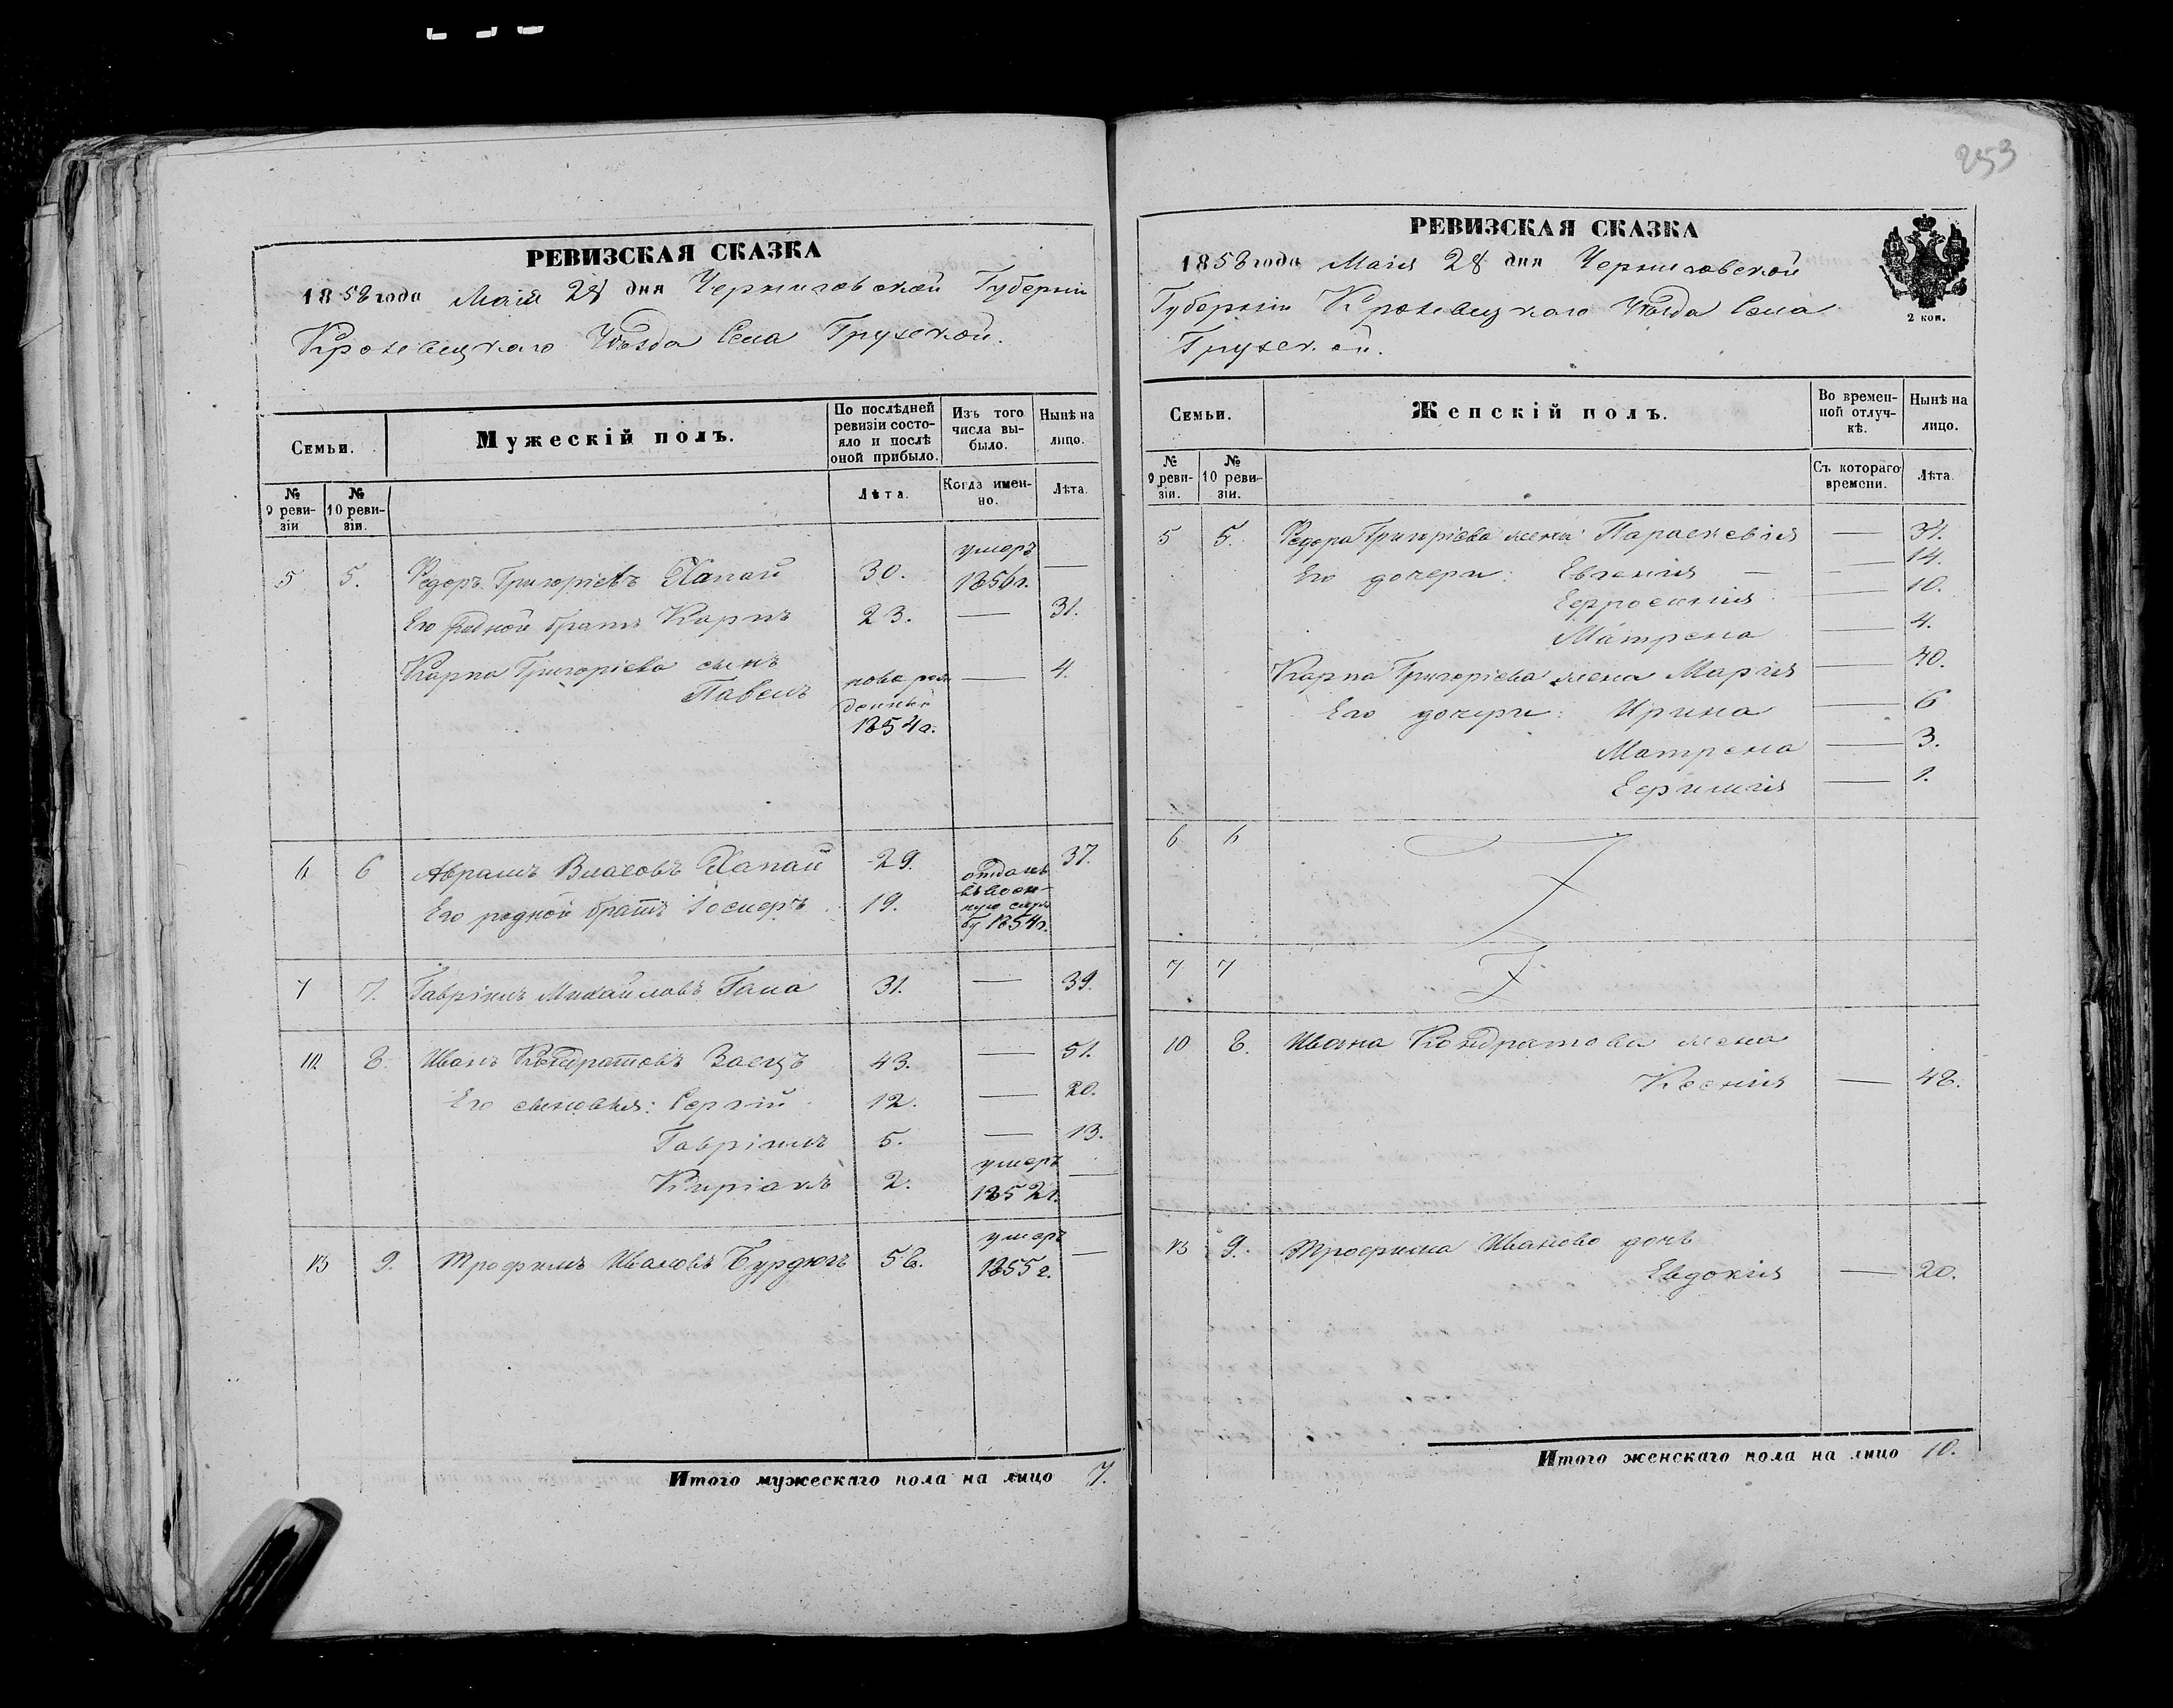 253
РЕВИЗСКАЯ СКАЗКА
1858 года Маія 28 дня Черниговской Губерніи
Кролевецкаго Уѣзда Села Грузской.
Семьи.
Мужескій полъ.
По послѣдней ревизіи состояло и послѣ оной прибыло.
Изъ того числа выбыло.
Нынѣ на лицо.
№ 9 ревизіи
№ 10 ревизіи.
Лѣта.
Когда именно.
Лѣта.
5 5. Федоръ Григоріевъ Хапай 30. умеръ 1856 г. —
Его родной братъ Карпъ 23. — 31.
Карпа Григоріева сынъ
Павелъ новорожденный 1854 г. — 4.
6 6 Аврамъ Власовъ Хапай 29. 37.
Его родной братъ Іосифъ 19. отданъ въ военную службу 1854 г.
7 7. Гавріилъ Михайловъ Гама 31. — 39.
10 8. Иванъ Кондратовъ Заецъ 43. — 51.
Его сыновья: Сергій 12. — 20.
Гавріилъ 5. — 13.
Киріакъ 2. умеръ 1852 г. —
13 9. Трофимъ Ивановъ Бурдюгъ 58. умеръ 1855 г. —
Итого мужескаго пола на лицо 7.
РЕВИЗСКАЯ СКАЗКА
1858 года Маія 28 дня Черниговской
Губерніи Кролевецкаго Уѣзда Села
Грузской.
2 коп.
Семьи.
Женскій полъ.
Во временной отлучкѣ.
Нынѣ на лицо.
№ 9 ревизіи.
№ 10 ревизіи.
Съ котораго времени.
Лѣта.
5 5. Федора Григоріева жена Параскевія — 31.
Его дочери: Евгенія — 14.
Ефросинія — 10.
Матрена — 4.
Карпа Григоріева жена Марія — 40.
Его дочери: Ирина — 6
Матрена — 3.
Ефимія — 1.
6 6
7 7
10 8. Ивана Кондратова жена
Ксенія — 48.
13 9. Трофима Иванова дочь
Евдокія — 20.
Итого женскаго пола на лицо 10.